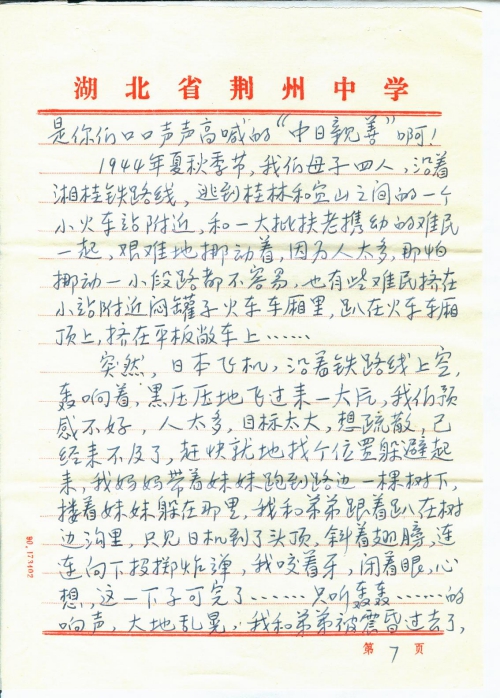 湖北省荆州中学
是你们口口声声高喊的“中日親善”啊！
1944年夏秋季节，我们母子四人，沿着
湘桂铁路线，逃到桂林和宜山之间的一个
小火车站附近，和一大批扶老携幼的难民
一起，艰难地挪动着，因为人太多，那怕
挪动一小段路都不容易，也有些难民挤在
小站附近闷罐子火车车厢里，趴在火车车厢
顶上，挤在平板敞车上……
突然，日本飞机，沿着铁路线上空，
轰响着，黑压压地飞过来一大片，我们预
感不好，人太多，目标太大，想疏散，已
经来不及了，赶快就地找个位置躲避起
来，我妈妈带着妹妹跑到路边一棵树下，
搂着妹妹躲在那里，我和弟弟跟着趴在树
边沟里，只见日机到了头顶，斜着翅膀，连
连向下投掷炸弹，我咬着牙，闭着眼，心
想，这一下子可完了……只听轰轰……的
响声，大地乱晃，我和弟弟被震昏过去了，
第 7 页